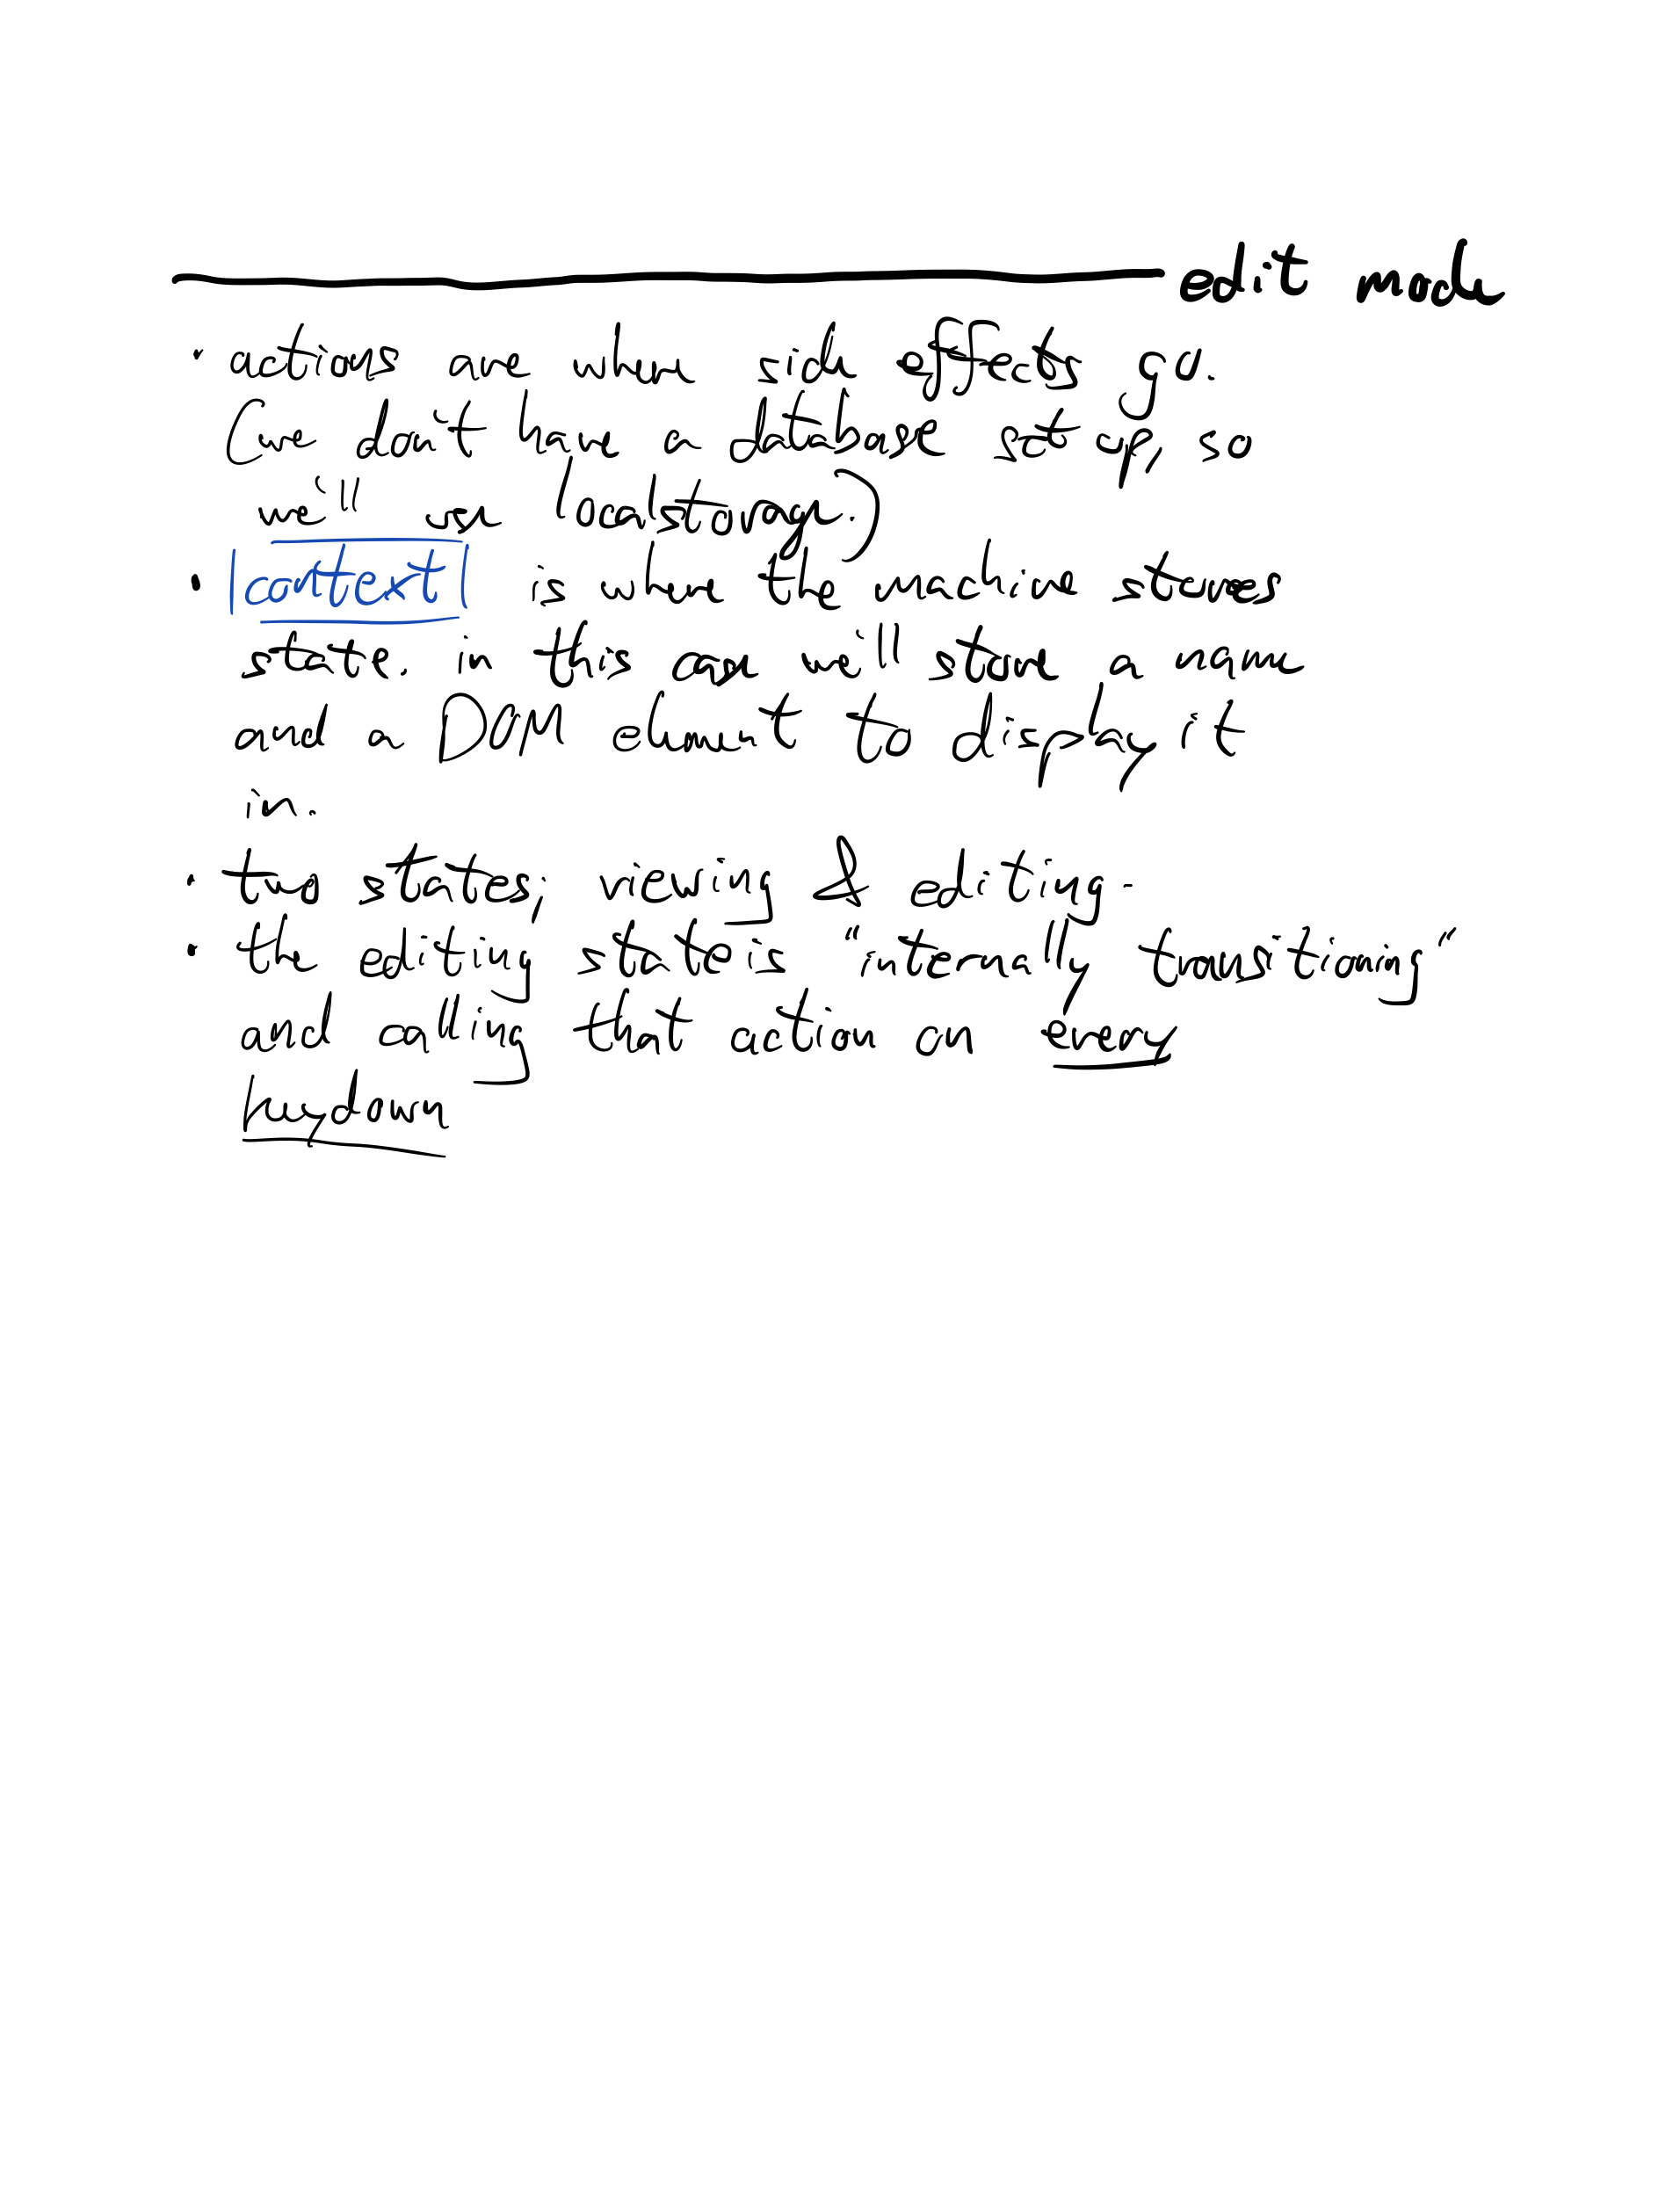 edit mode
· actions are where side effects go.
(we don't have a database set up, so
we'll use localstorage.)
· |context| is where the machine stores
state. in this case we'll store a name
and a DOM element to display it
in.
· two states; viewing & editing.
· the editing state is "internally transitioning"
and calling that action on every
keydown